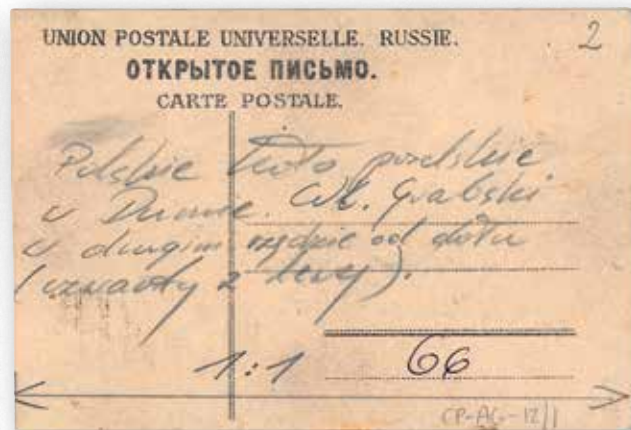 UNION POSTALE UNIVERSELLE. RUSSIE.
2
ОТКРЫТОЕ ПИСЬМО.
CARTE POSTALE.
Polskie Koło poselskie
w Dumie. Wł. Grabski
w drugim rzędzie od dołu
(czwarty z lewej).
1:1
66
CP-AG-12/1